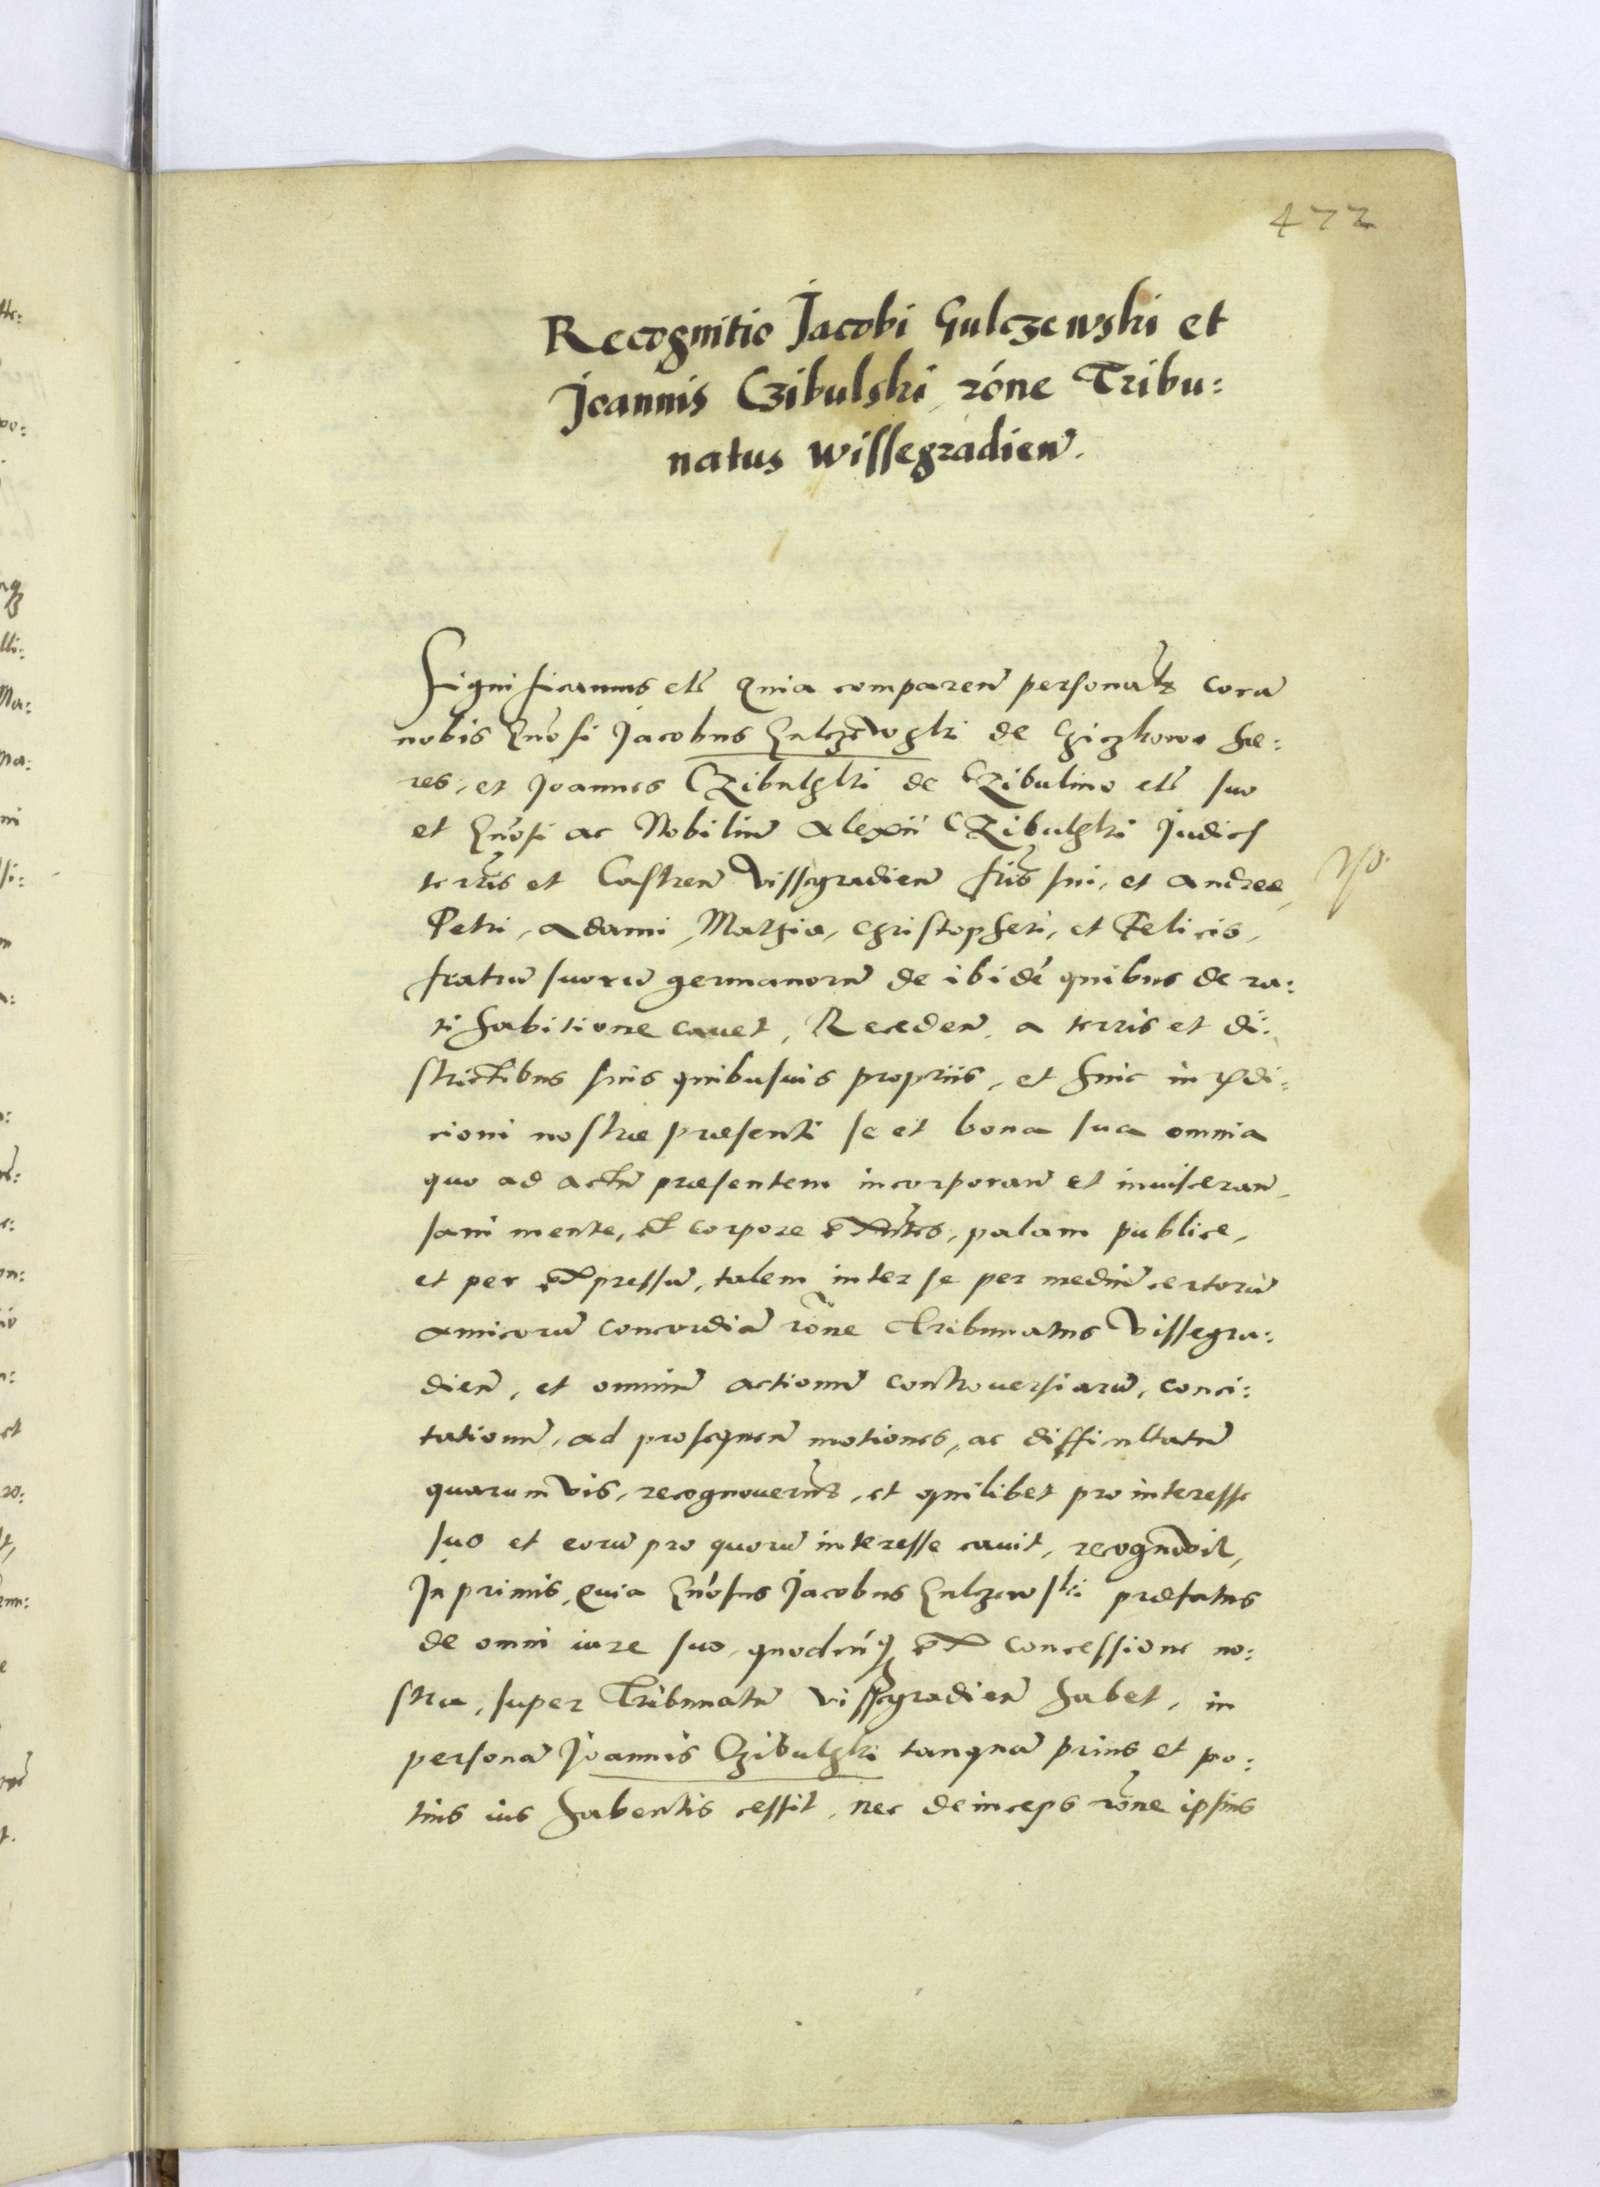 472
Recognitio Jacobi Gulczewski et
Joannis Czibulski rōne Tribu:
natus wissegradien̄.
Significamus etc̄ Quia comparen̄ personal̄r corā
nobis Gn̄osi Jacobus Gulczewski de hæ:
res, et Joannes Czibulski de Czibulino etc̄ suo
et Gn̄osi ac Nobiliū Alexii Czibulski Judicis
terr̄is et Castren̄ Vissegradien̄ fr̄is sui, et Andreæ,
Petri, Adami, Mathiæ, Christopheri, et Felicis,
fratrū suorū germanorū de ibidē quibus de ra:
tihabitione cavet, Receden̄ a terris et di:
strictibus suis quibusuis propriis, et huic
cioni nostræ præsenti se et bona sua omnia
quo ad actū præsentem incorporan̄ et inuisceran̄,
sani mente, et corpore exn̄tes, palam publice,
et per expressū, talem inter se per mediū certorū
amicorū concordiā rōne Tribunatus Vissegra:
dien̄, et omniū actionū controuersiarū, conci:
tationū, ad prosequen̄ motiones, ac difficultatū
quarumvis, recognouerūt, et quilibet pro interesse
suo et eorū pro quorū interesse cauit, recognovit,
In primis, Quia Gn̄osus Jacobus Gulczewski præfatus
de omni iure suo, quodcūq ex concessione no:
stra, super Tribunatū Vissegradien̄ habet, in
personā Joannis Czibulski tanquā prius et po:
tius ius habentis cessit, nec deinceps rōne ipsius